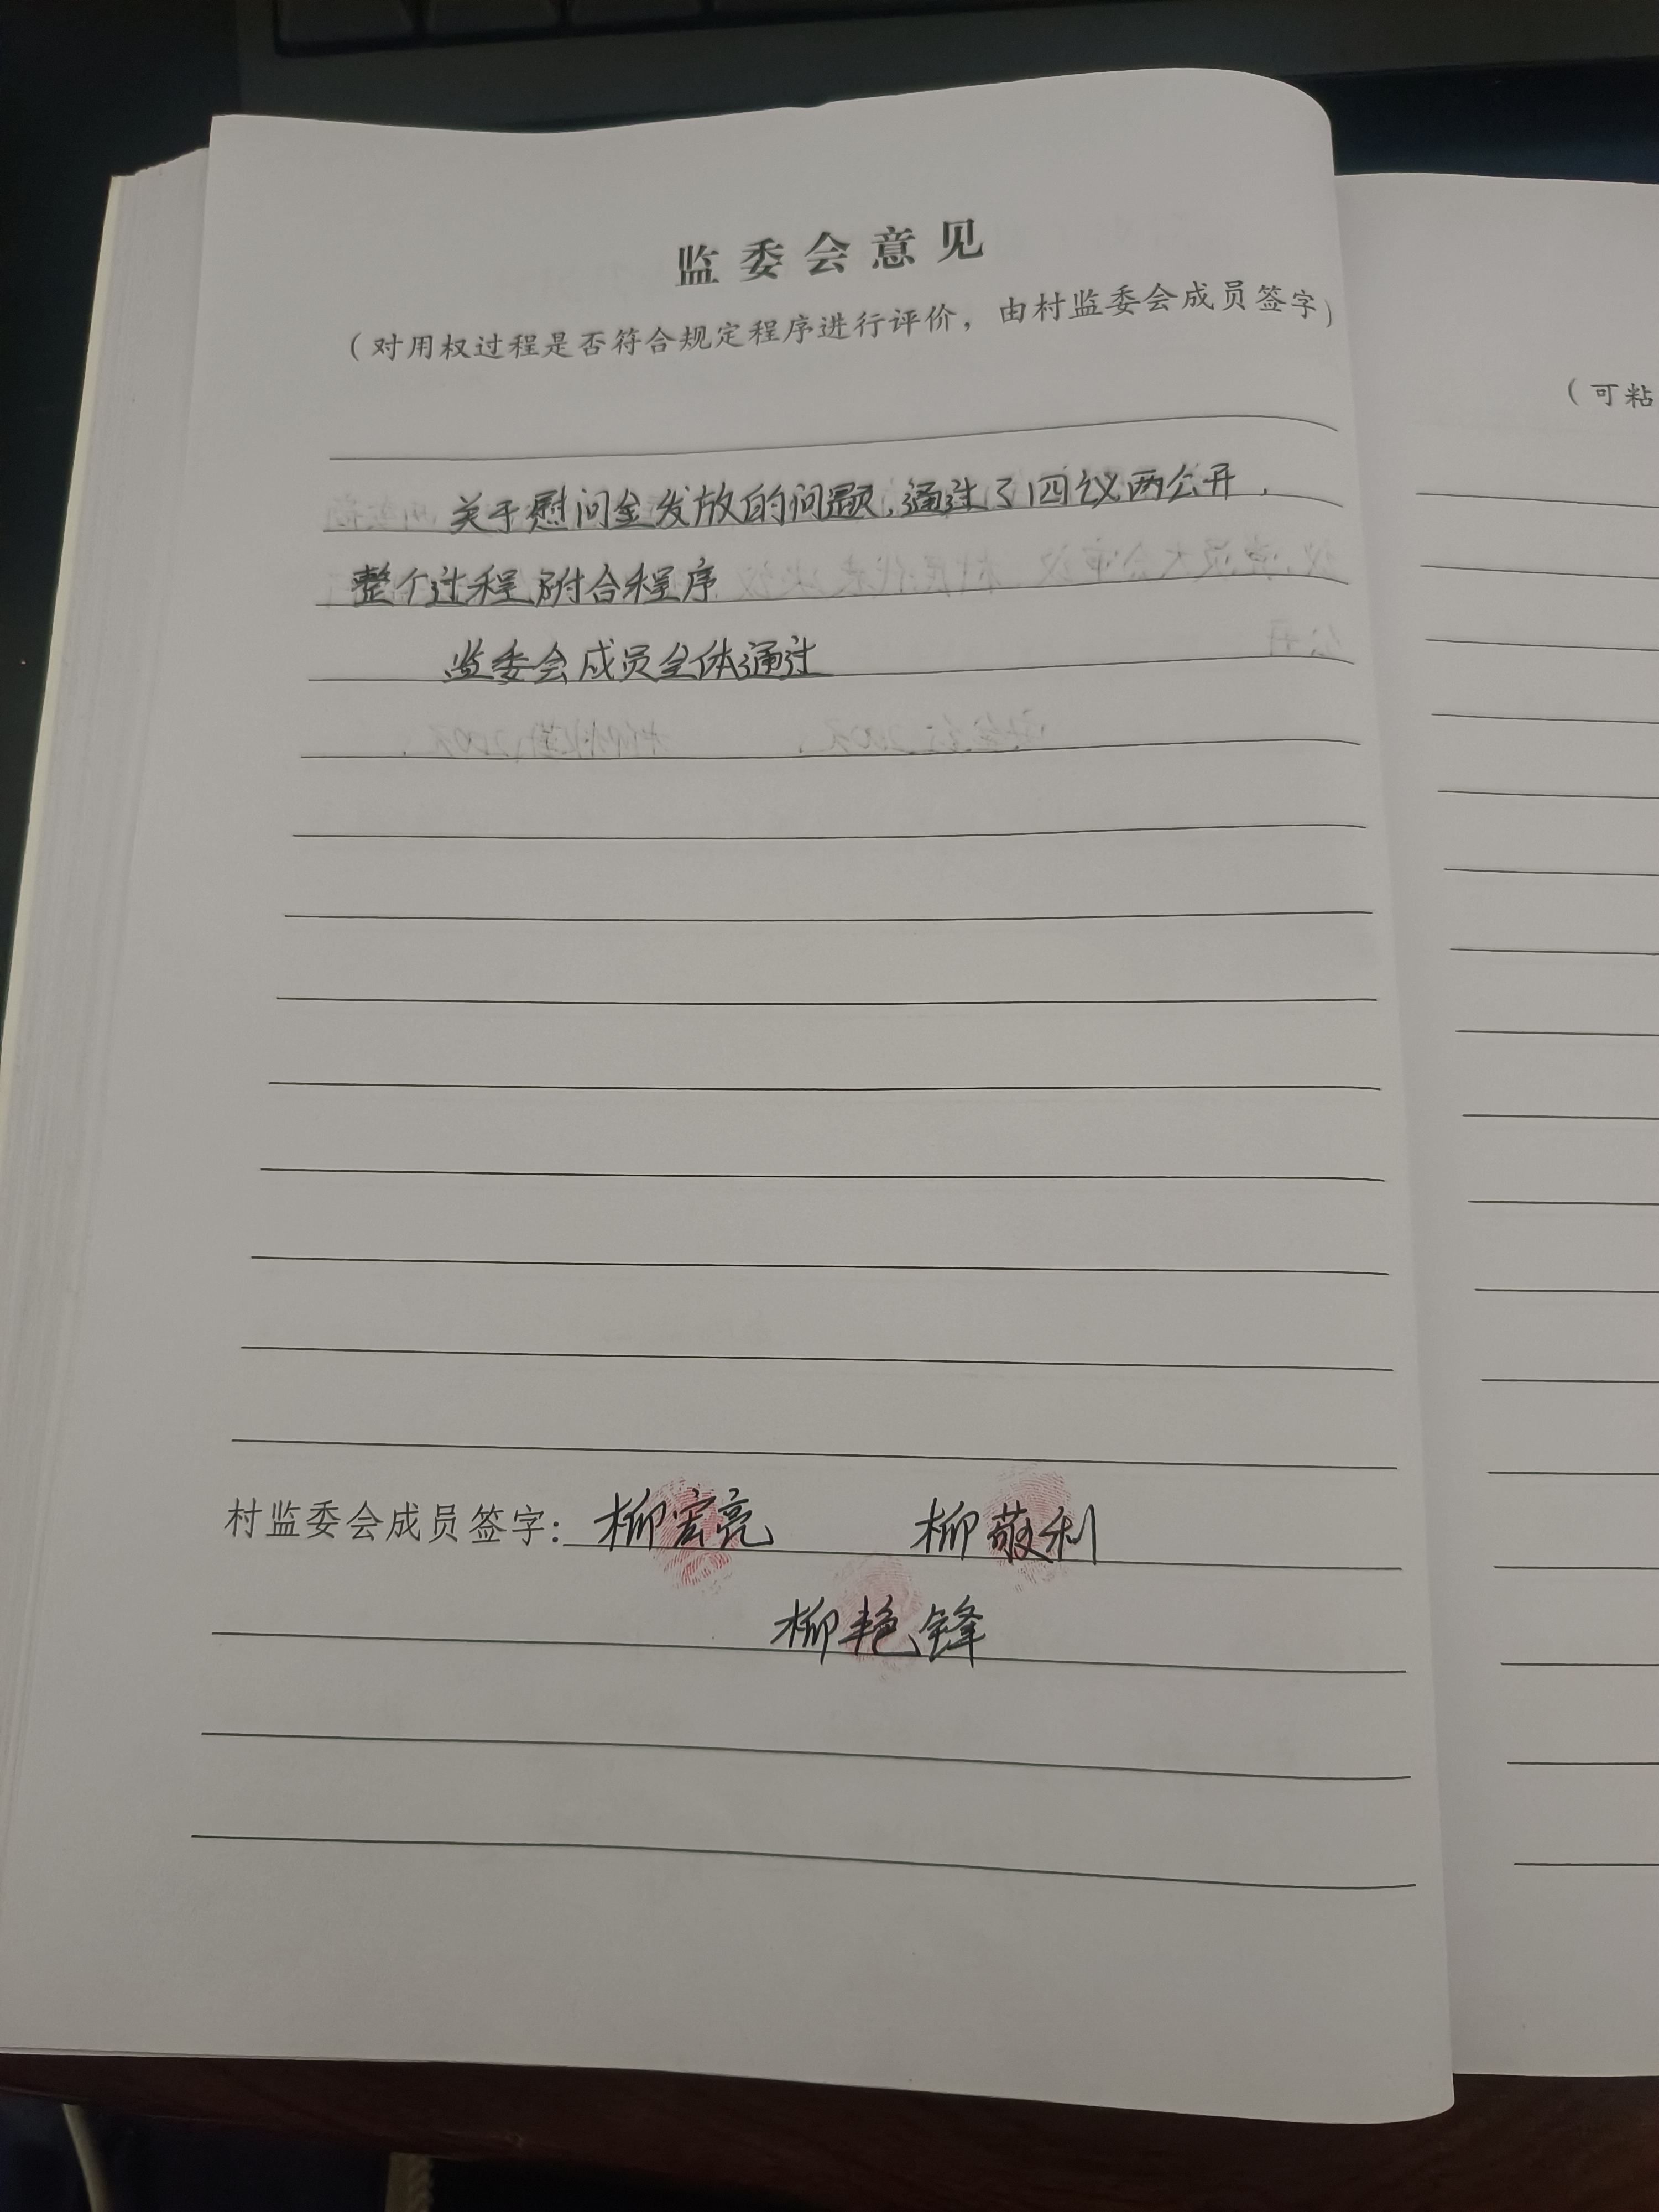 监委会意见
（对用权过程是否符合规定程序进行评价，由村监委会成员签字）
关于慰问金发放的问题，通过了四议两公开．
整个过程附合程序
监委会成员全体通过
村监委会成员签字：柳宏亮 柳敬利
柳艳锋
（可粘